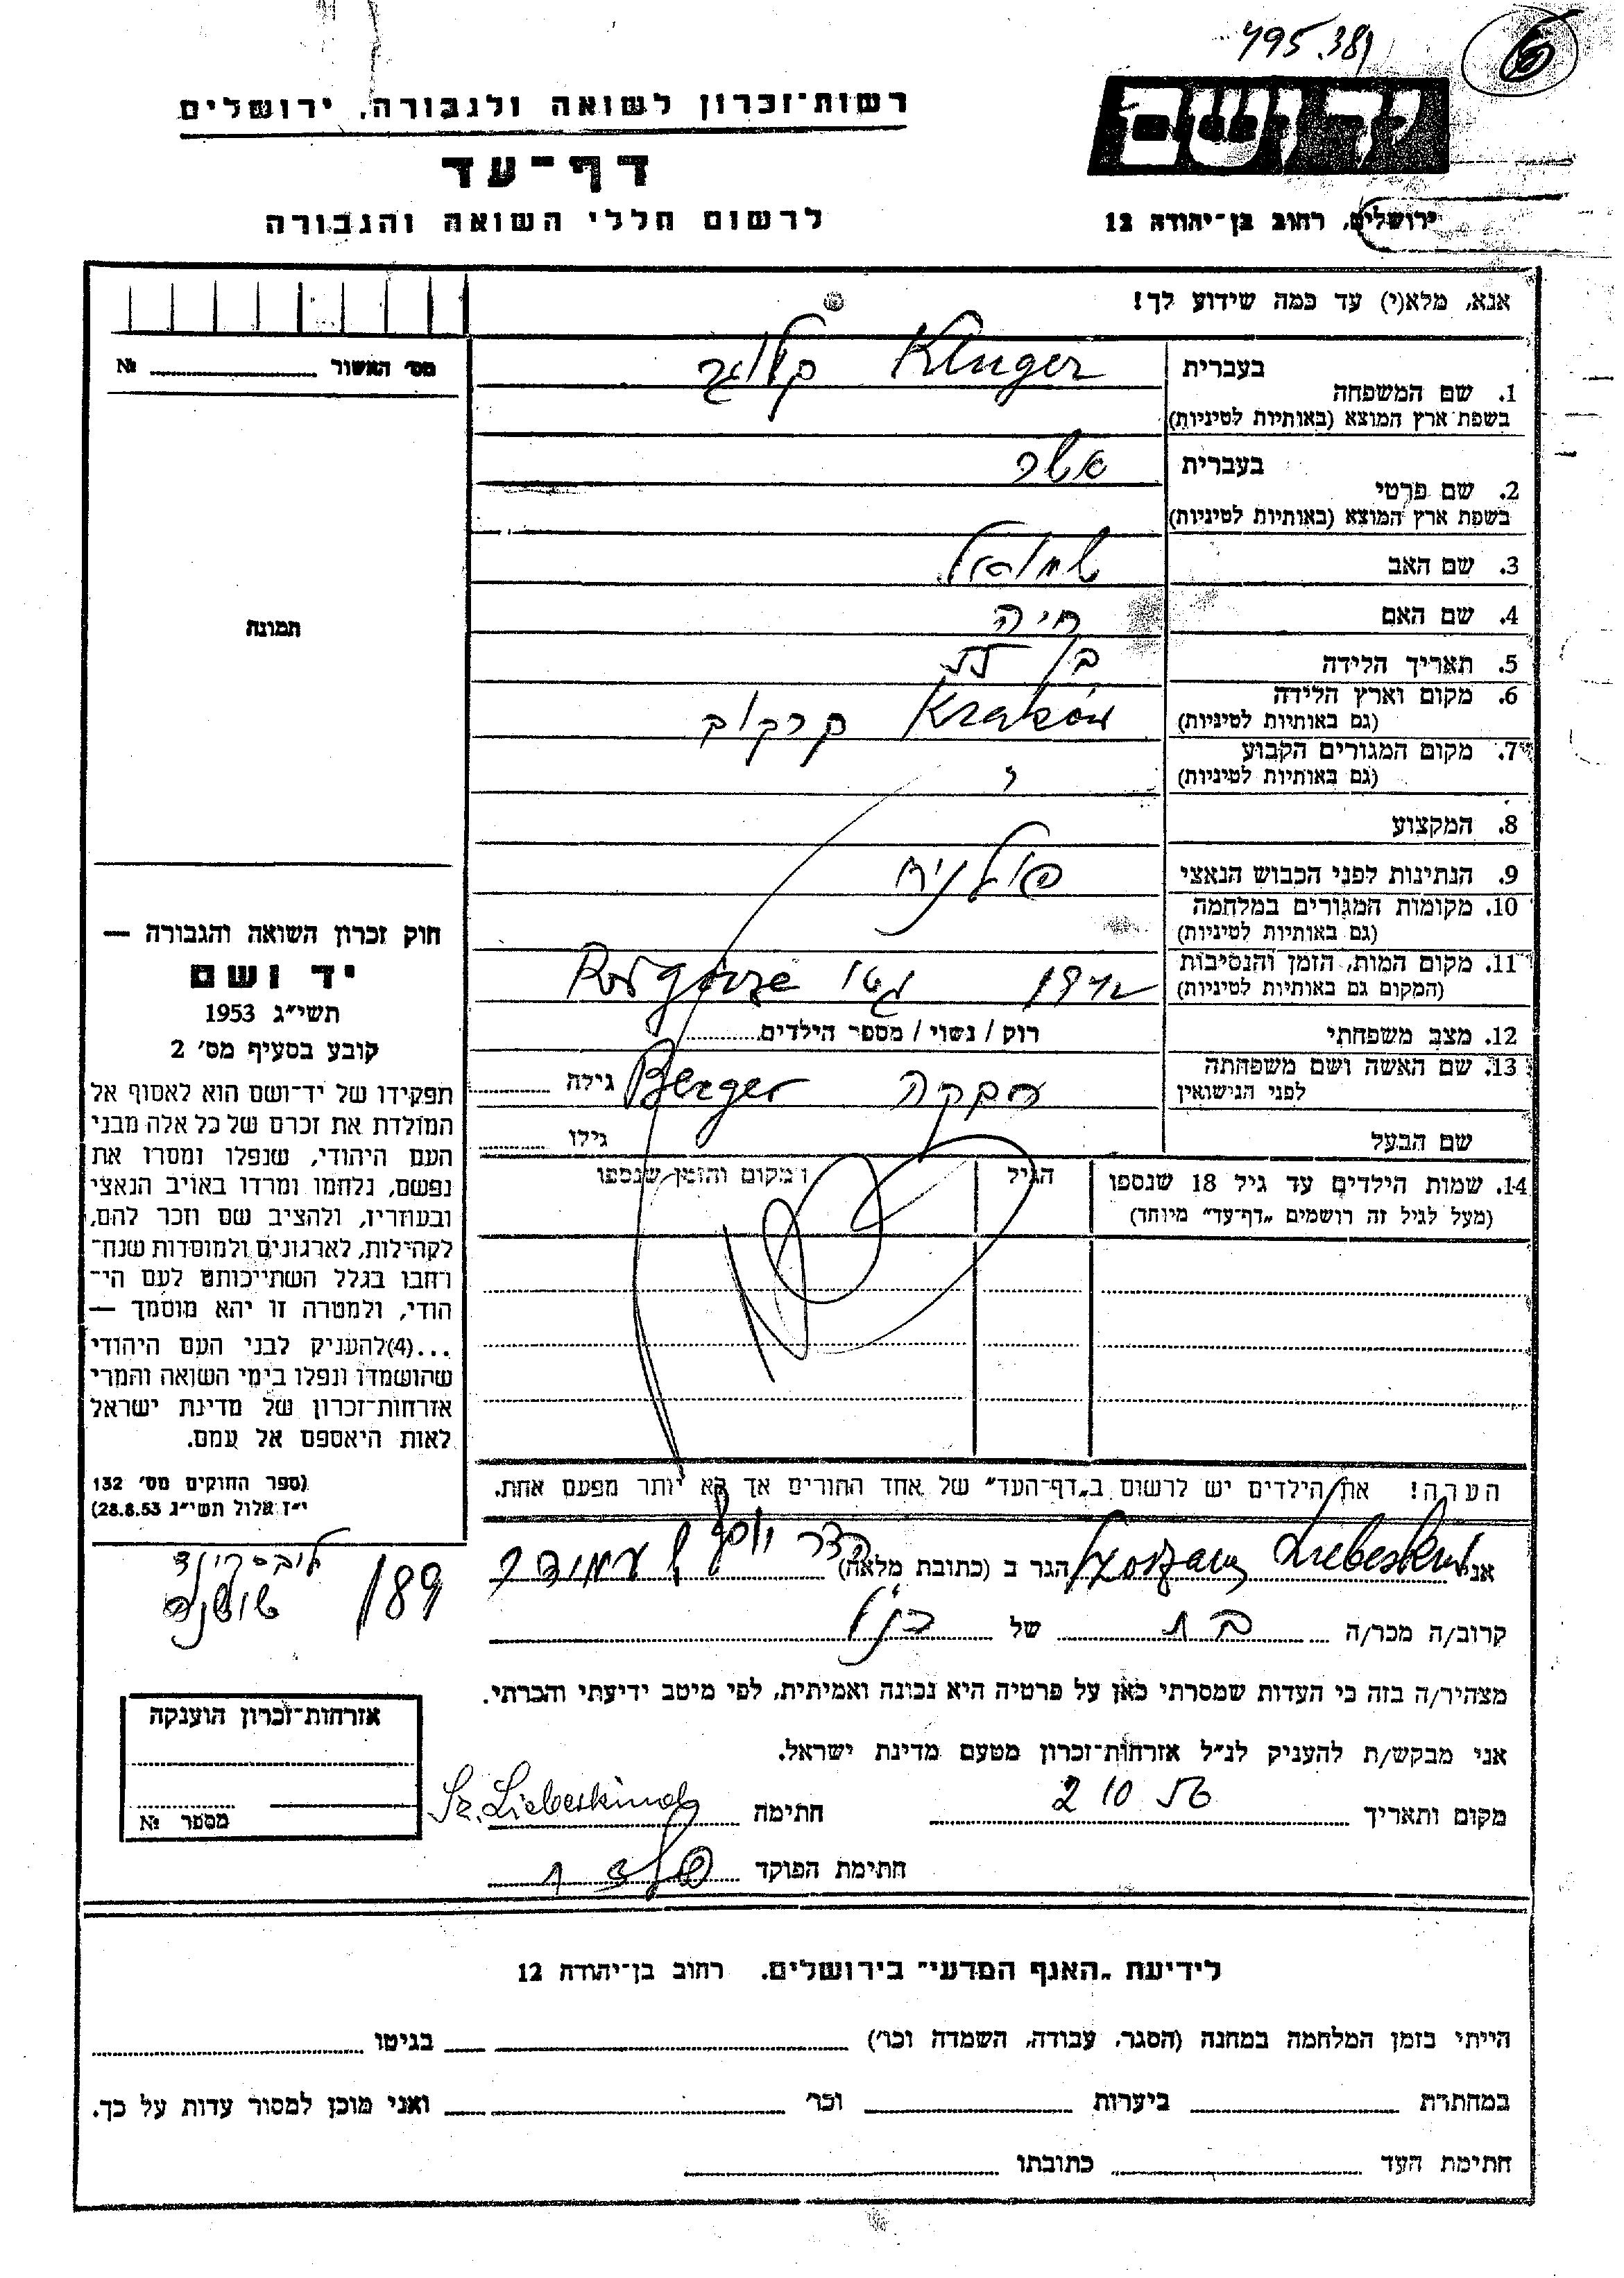 495.381
6
יד ושם
רשות־זכרון לשואה ולגבורה, ירושלים
דף־עד
לרשום חללי השואה והגבורה
ירושלים, רחוב בן־יהודה 12
אנא, מלא(י) עד כמה שידוע לך!
מס׳ האשור № 
תמונה
בעברית קלוגר Kluger
1. שם המשפחה
בשפת ארץ המוצא (באותיות לטיניות)
בעברית אשר
2. שם פרטי
בשפת ארץ המוצא (באותיות לטיניות)
3. שם האב שמואל
4. שם האם חיה
5. תאריך הלידה בן
6. מקום וארץ הלידה Kraków קרקוב
(גם באותיות לטיניות)
7. מקום המגורים הקבוע
(גם באותיות לטיניות)
8. המקצוע
9. הנתינות לפני הכבוש הנאצי פולנית
10. מקומות המגורים במלחמה
(גם באותיות לטיניות)
11. מקום המות, הזמן והנסיבות 1942 גטו
(המקום גם באותיות לטיניות)
12. מצב משפחתי רוק / נשוי / מספר הילדים
13. שם האשה ושם משפחתה רבקה Berger גילה
לפני הנישואין
שם הבעל גילו
14. שמות הילדים עד גיל 18 שנספו הגיל ומקום והזמן שנספו
(מעל לגיל זה רושמים „דף־עד” מיוחד)
הערה! את הילדים יש לרשום ב„דף־העד” של אחד ההורים אך לא יותר מפעם אחת.
חוק זכרון השואה והגבורה —
יד ושם
תשי״ג 1953
קובע בסעיף מס׳ 2
תפקידו של יד־ושם הוא לאסוף אל
המולדת את זכרם של כל אלה מבני
העם היהודי, שנפלו ומסרו את
נפשם, נלחמו ומרדו באויב הנאצי
ובעוזריו, ולהציב שם וזכר להם,
לקהילות, לארגונים ולמוסדות שנח־
רחבו בגלל השתייכותם לעם הי־
הודי, ולמטרה זו יהא מוסמך —
...(4)להעניק לבני העם היהודי
שהושמדו ונפלו בימי השואה והמרי
אזרחות־זכרון של מדינת ישראל
לאות היאספם אל עמם.
(ספר החוקים מס׳ 132
י״ז אלול תשי״ג 28.8.53)
אני Liebeskind הגר ב (כתובת מלאה) הדר יוסף
ליבסקינד
שושנה
189
קרוב/ה מכר/ה בת של הנ״ל
מצהיר/ה בזה כי העדות שמסרתי כאן על פרטיה היא נכונה ואמיתית, לפי מיטב ידיעתי והכרתי.
אני מבקש/ת להעניק לנ״ל אזרחות־זכרון מטעם מדינת ישראל.
מקום ותאריך 2 10 56 חתימה Sz. Liebeskind
חתימת הפוקד
אזרחות־זכרון הוענקה
מספר №
לידיעת „האגף המדעי” בירושלים. רחוב בן־יהודה 12
הייתי בזמן המלחמה במחנה (הסגר, עבודה, השמדה וכו׳) בגיטו
במחתרת ביערות וכו׳ ואני מוכן למסור עדות על כך.
חתימת העד כתובתו